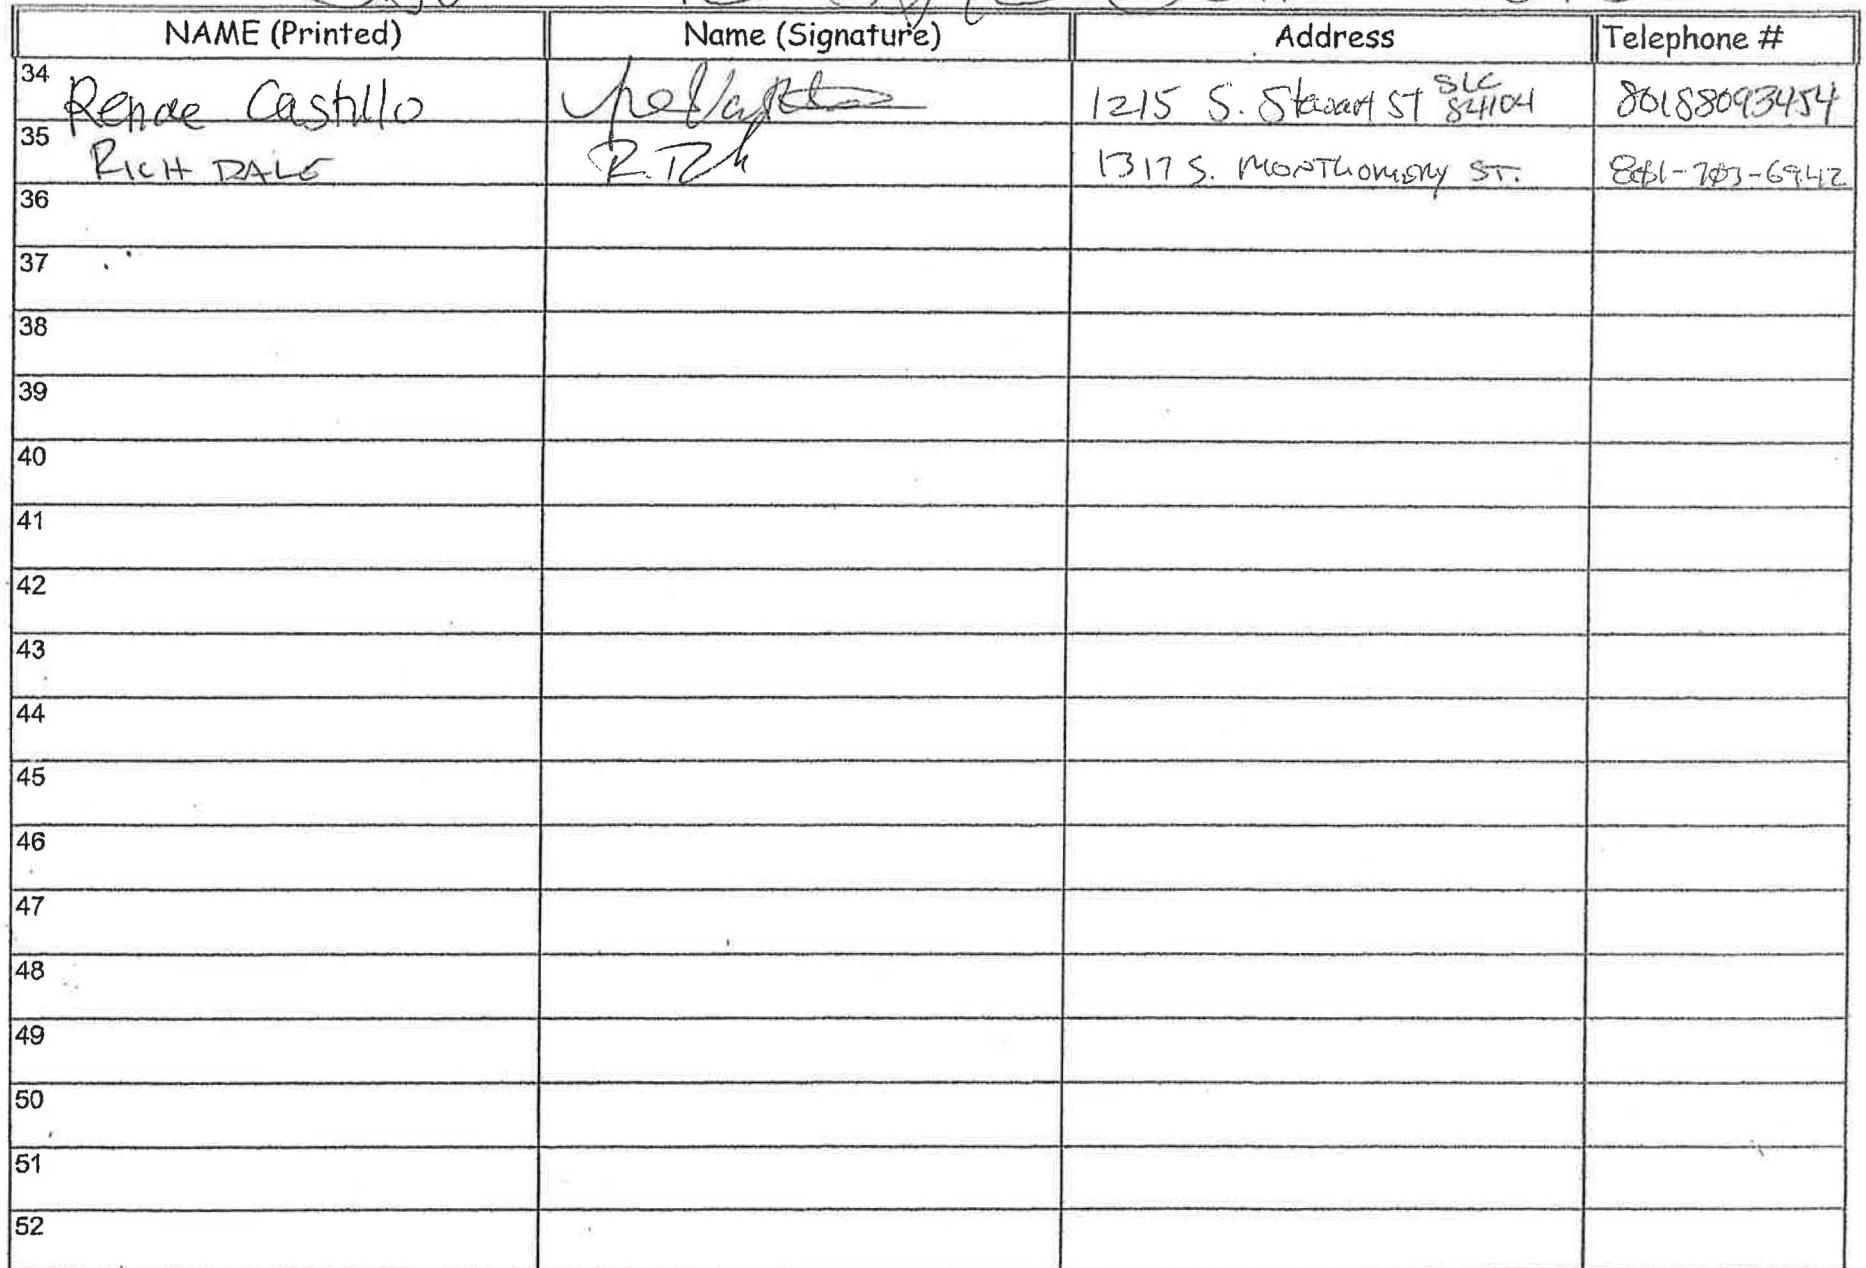 NAME (Printed) Name (Signature) Address Telephone #
34 Renae Castillo 1215 S. Stewart St SLC 84104 80188093454
35 RICH DALE 1317 S. MONTGOMERY ST. 801-703-6942
36
37
38
39
40
41
42
43
44
45
46
47
48
49
50
51
52